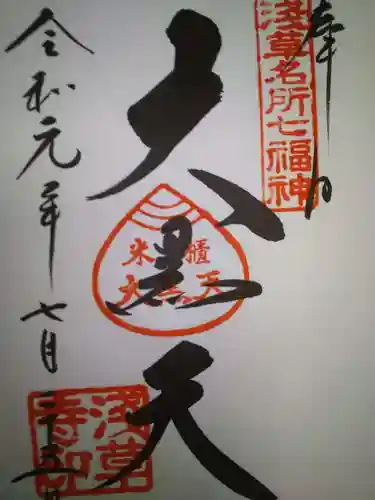 奉拝
淺草名所七福神
大黒天
米櫃
大黒天
令和元年七月二十五日
淺草寺印